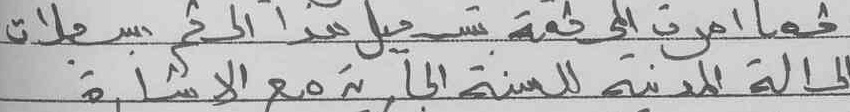 كما امرت المحكمة بتسجيل هذا الحكم بسجلات
الحالة المدنية للسنة الجارية مع الاشارة